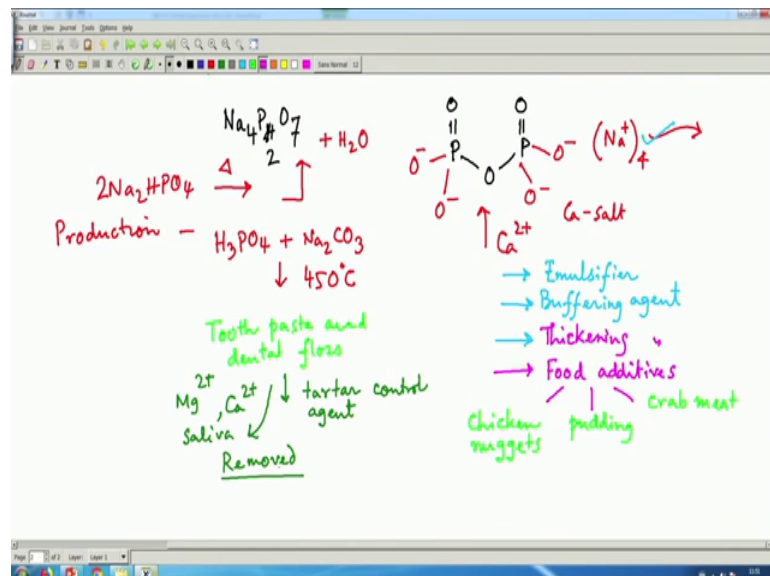 Journal
File Edit View Journal Tools Options Help
Sans Normal 12
Na4P2O7 + H2O
2Na2HPO4 Δ →
Production – H3PO4 + Na2CO3
↓ 450°C
Tooth paste and
dental floss
Mg2+, Ca2+
saliva
↓ tartar control
agent
Removed
O O
|| ||
O- P O P O- (Na+)4
O- O-
Ca-salt
↑ Ca2+
→ Emulsifier
→ Buffering agent
→ Thickening "
→ Food additives
Chicken
nuggets
pudding
crab meat
Page 2 of 2 Layer: Layer 1
11:51